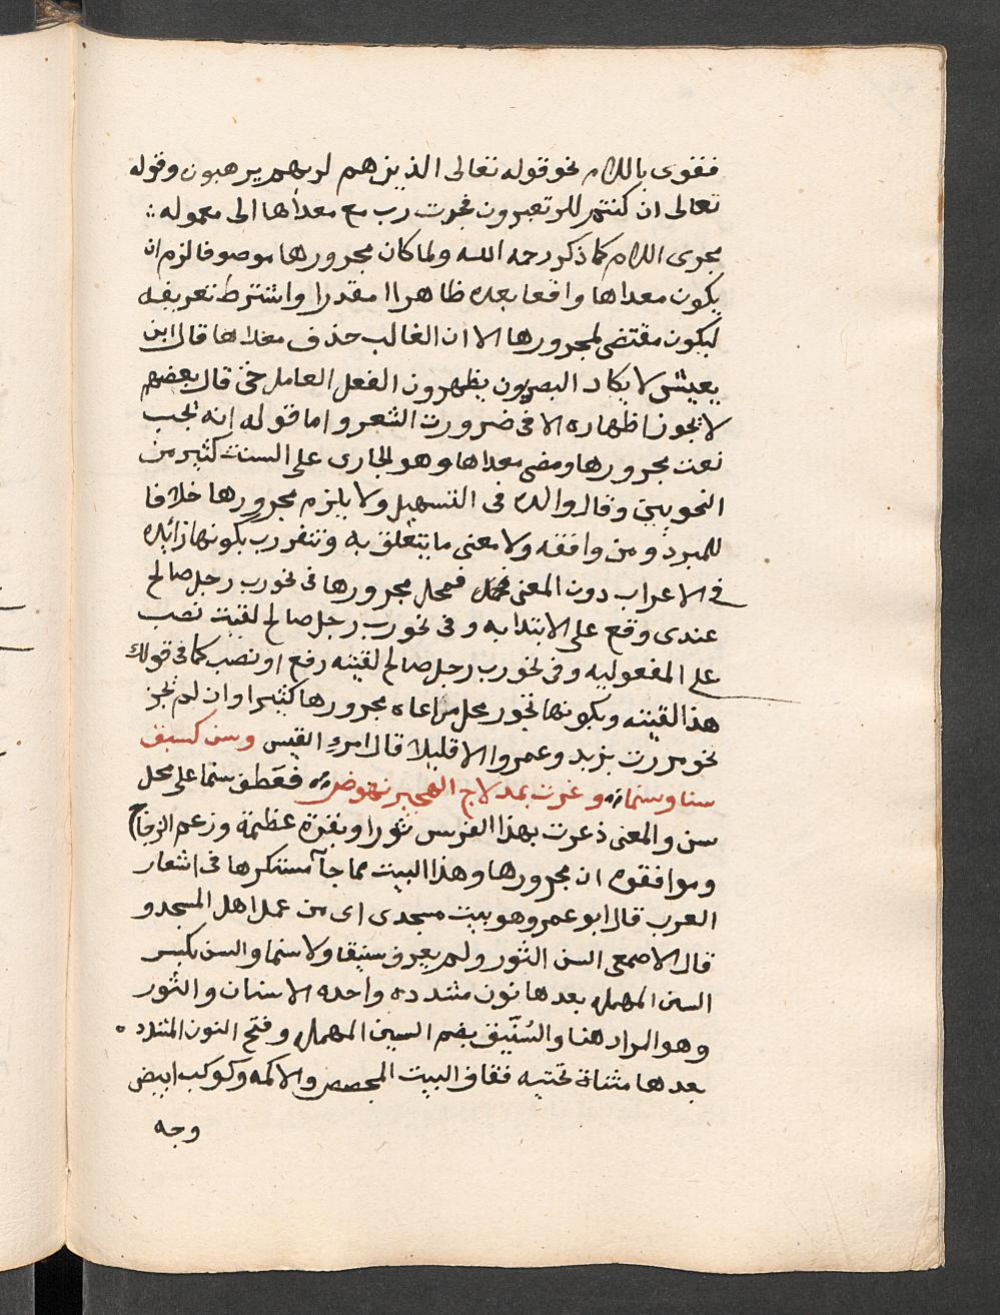 فقوى باللام نحو قوله تعالى الذين هم لربهم يرهبون وقوله
تعالى ان كنتم للرؤيا تعبرون فجرت رب مع معداها الى معموله
مجرى اللام كما ذكر رحمه الله ولما كان مجرورها موصوفا لزم ان
يكون معداها واقعا بعده ظاهرا او مقدرا واشترط تعريفه
ليكون مقتضى لمجرورها الا ان الغالب حذف معداها قال ابن
يعيش لا يكاد البصريون يظهرون الفعل العامل حتى قال بعضهم
لا يجوز اظهاره الا فى ضرورت الشعر واما قوله إنه يجب
نعت مجرورها ومضى معداها وهو الجارى على السنت كثير من
النحويين وقال والده فى التسهيل ولا يلزم مجرورها خلافا
للمبرد ومن وافقه ولا معنى ما يتعلق به وتنفرد رب بكونها زائده
في الاعراب دون المعنى فمحل مجرورها فى نحو رب رجل صالح
عندى وقع على الابتدا به و فى نحو رب رجل صالح لقيت نصب
على المفعوليه وفى نحو رب رجل صالح لقيته رفع او نصب كما فى قولك
هذا لقيته وبكونها تجوز محل مراعاه مجرورها كثيرا وان لم تجز
نحو مررت بزيد وعمروا الا قليلا قال امرء القيس وسن كسنيق
سناوسنما ذعرت بمدلاج الهجير نهوض فعطف سنما على محل
سن والمعنى ذعرت بهذا الفرس ثورا وبقرة عظيمة وزعم الزجاج
وموافقوه ان مجرورها وهذا البيت مما جآ مستكرها فى اشعار
العرب قال ابو عمرو وهو بيت مسجدى اى من عمل اهل المسجد و
قال الاصمعى السن الثور ولم يعرف سنيقا ولا سنما والسن بكسر
السين المهمله بعدها نون مشدده واحده الاسنان والثور
وهو المراد هنا والسُنّيق بضم السين المهمله وفتح النون المشدده
بعدها مثناة تحتيه فقاف البيت المجصص والاكمه وكوكب ابيض
وجه